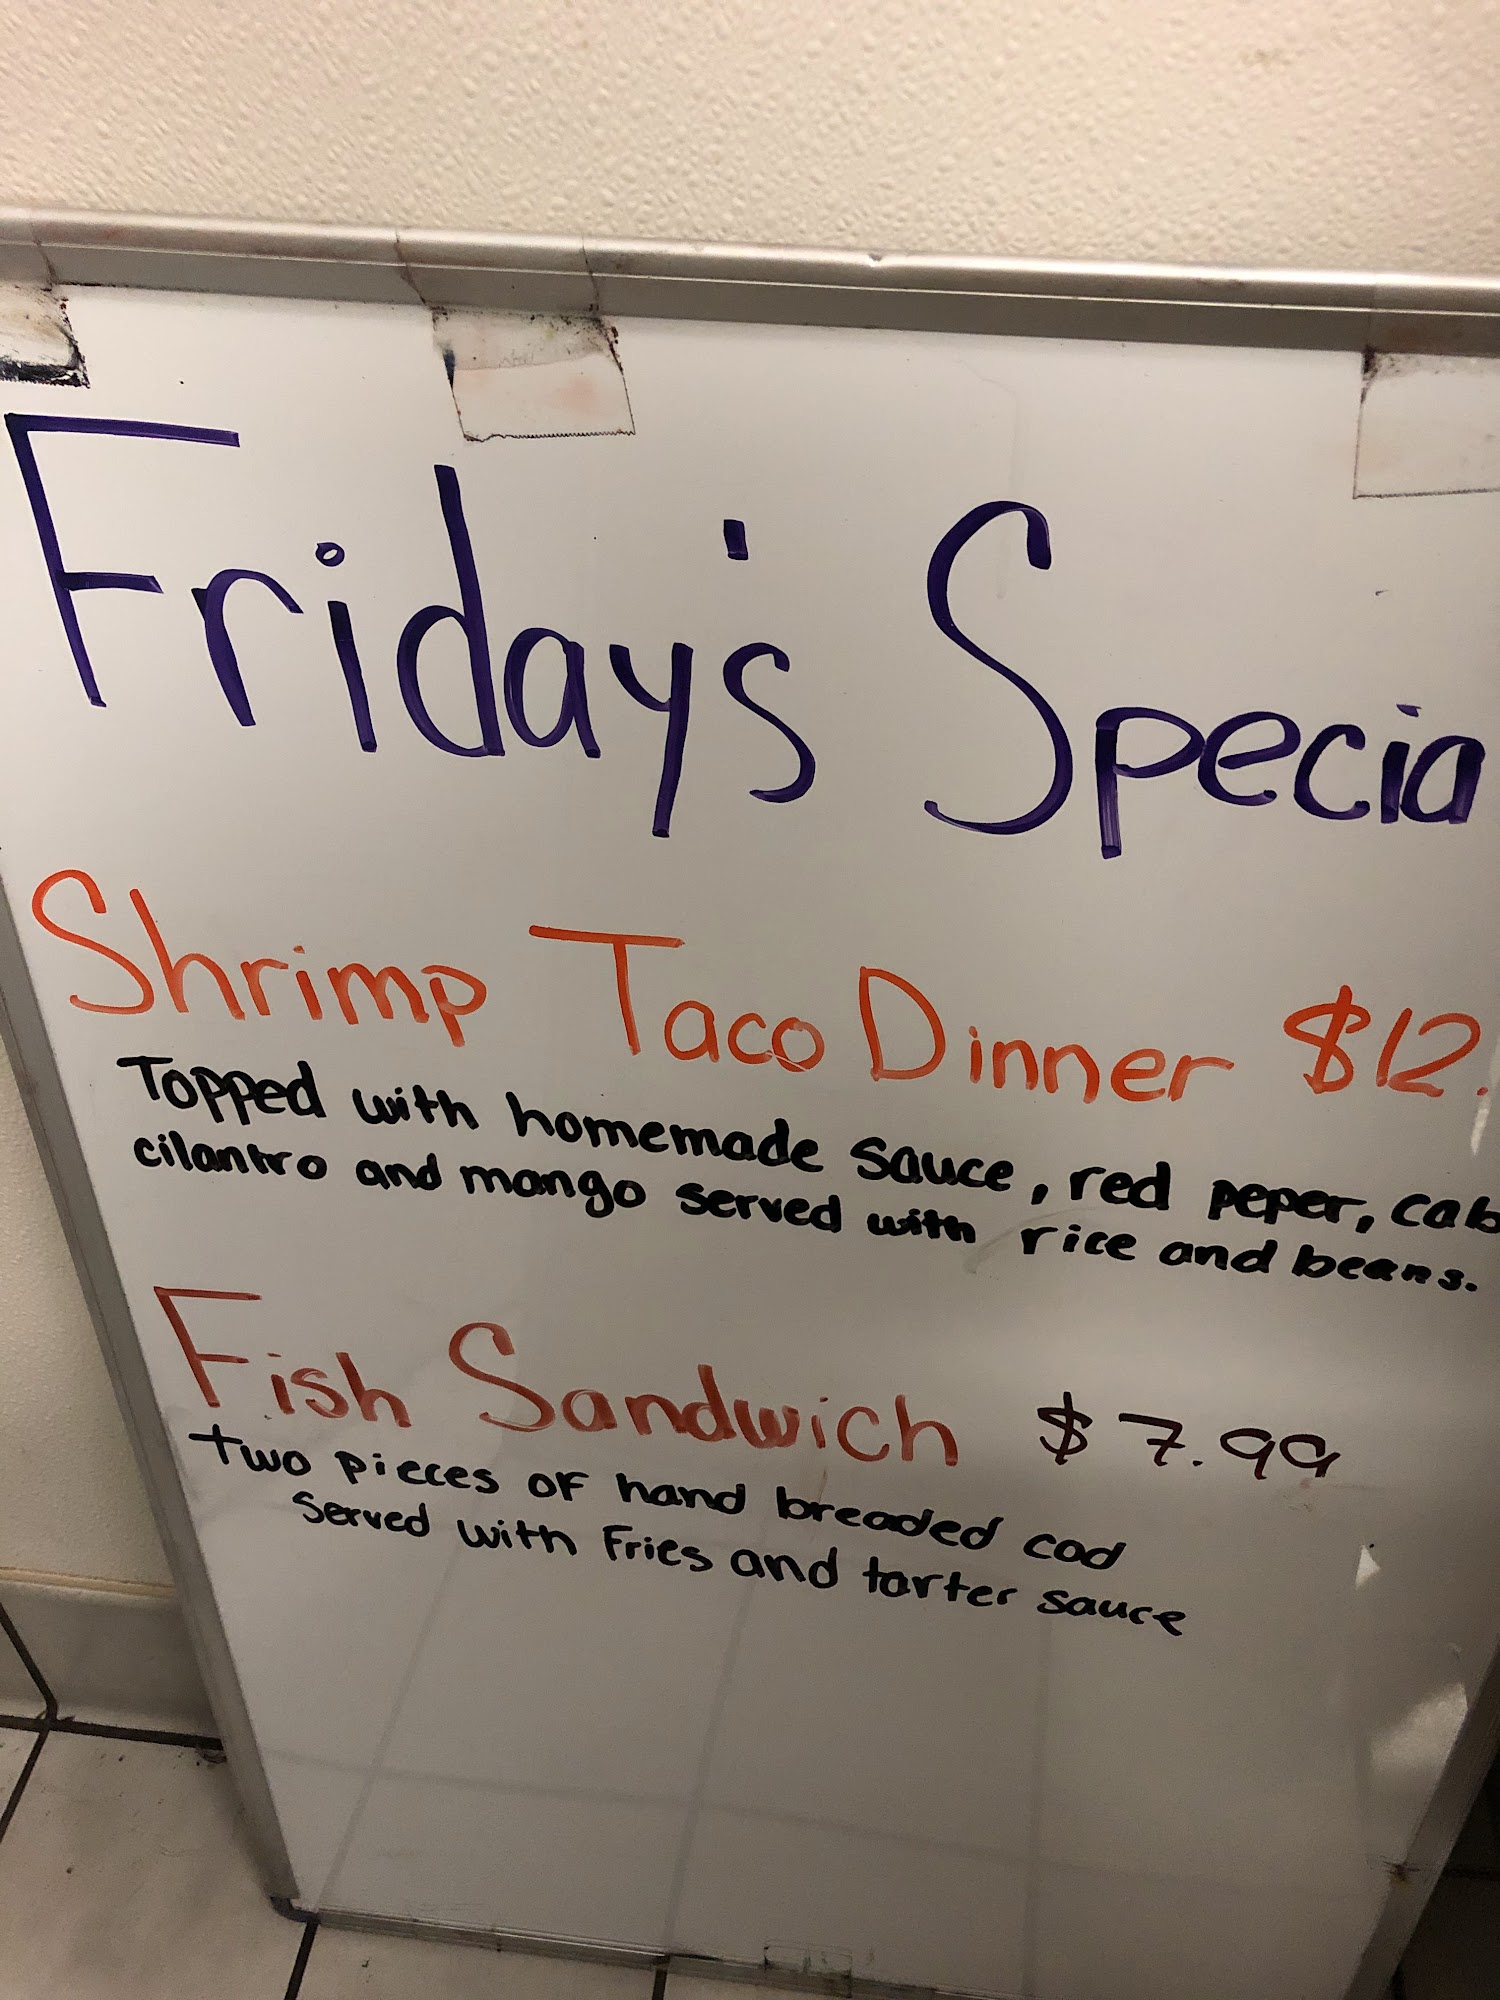 Friday's Specia
Shrimp Taco Dinner $12.
Topped with homemade sauce, red peper, cab
cilantro and mango served with rice and beans.
Fish Sandwich $7.99
two pieces of hand breaded cod
served with Fries and tarter sauce